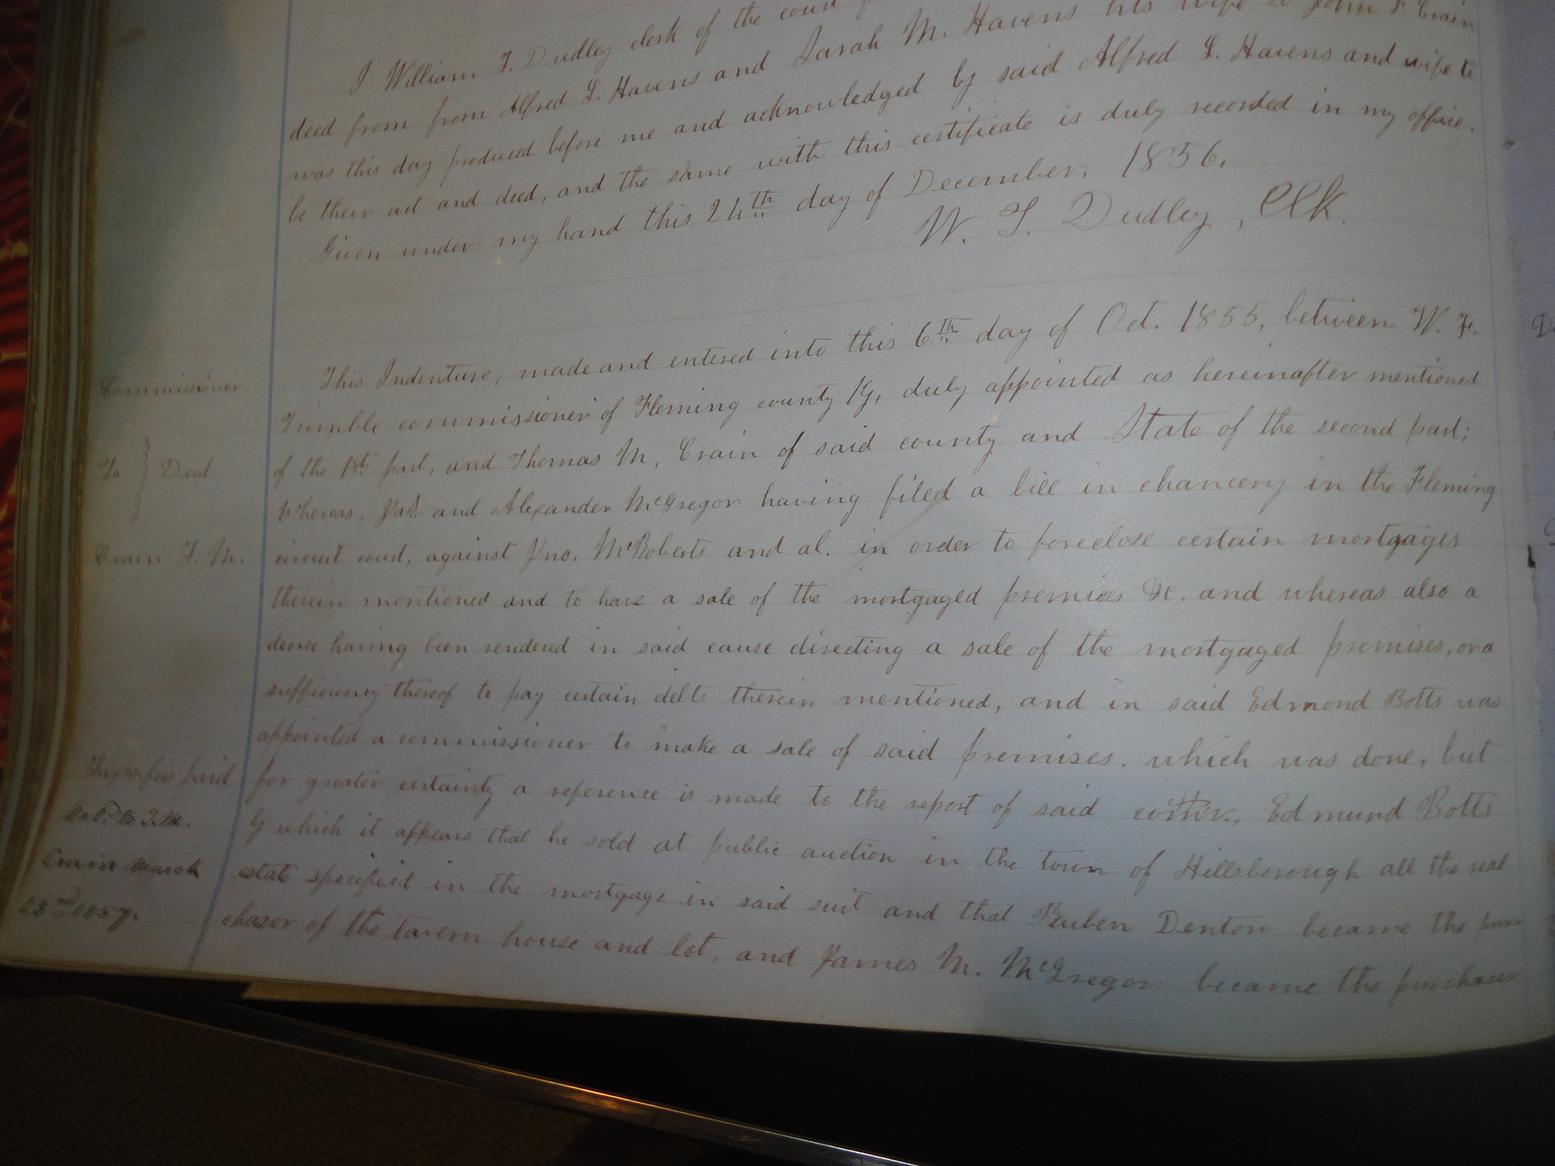 I William T. Dudley clerk of the court
deed from from Alfred L. Havens and Sarah M. Havens his wife to John F Crain
was this day produced before me and acknowledged by said Alfred L. Havens and wife to
be their act and deed, and the same with this certificate is duly recorded in my office.
Given under my hand this 24th day of December, 1856,
W. T. Dudley, Clk.
Commissioner
To } Deed
Crain T. M.
This Indenture, made and entered into this 6th day of Oct. 1855, between W. F.
Trimble commissioner of Fleming county Ky, duly appointed as hereinafter mentioned
of the 1st part, and Thomas M, Crain of said county and State of the second part;
Whereas, and Alexander McGregor having filed a bill in chancery in the Fleming
circuit court, against Jno. McRoberts and al. in order to foreclose certain mortgages
therein mentioned and to have a sale of the mortgaged premises &c. and whereas also a
decree having been rendered in said cause directing a sale of the mortgaged premises, or a
sufficiency thereof to pay certain debts therein mentioned, and in said Edmond Botts was
appointed a commissioner to make a sale of said premises, which was done, but
for greater certainty a reference is made to the report of said Edmund Botts
By which it appears that he sold at public auction in the town of Hillsborough all the real
estate specified in the mortgage in said suit and that Reuben Denton became the pur
chaser of the tavern house and lot, and James M. McGregor became the purchaser
fees paid
T. M.
Crain March
23rd 1857.